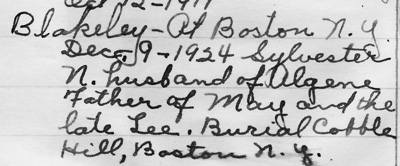 Oct 12-1911
Blakeley-At Boston N.Y.
Dec. 9-1924 Sylvester
N. husband of Algene
Father of May and the
late Lee. Burial Cobble
Hill, Boston N.Y.